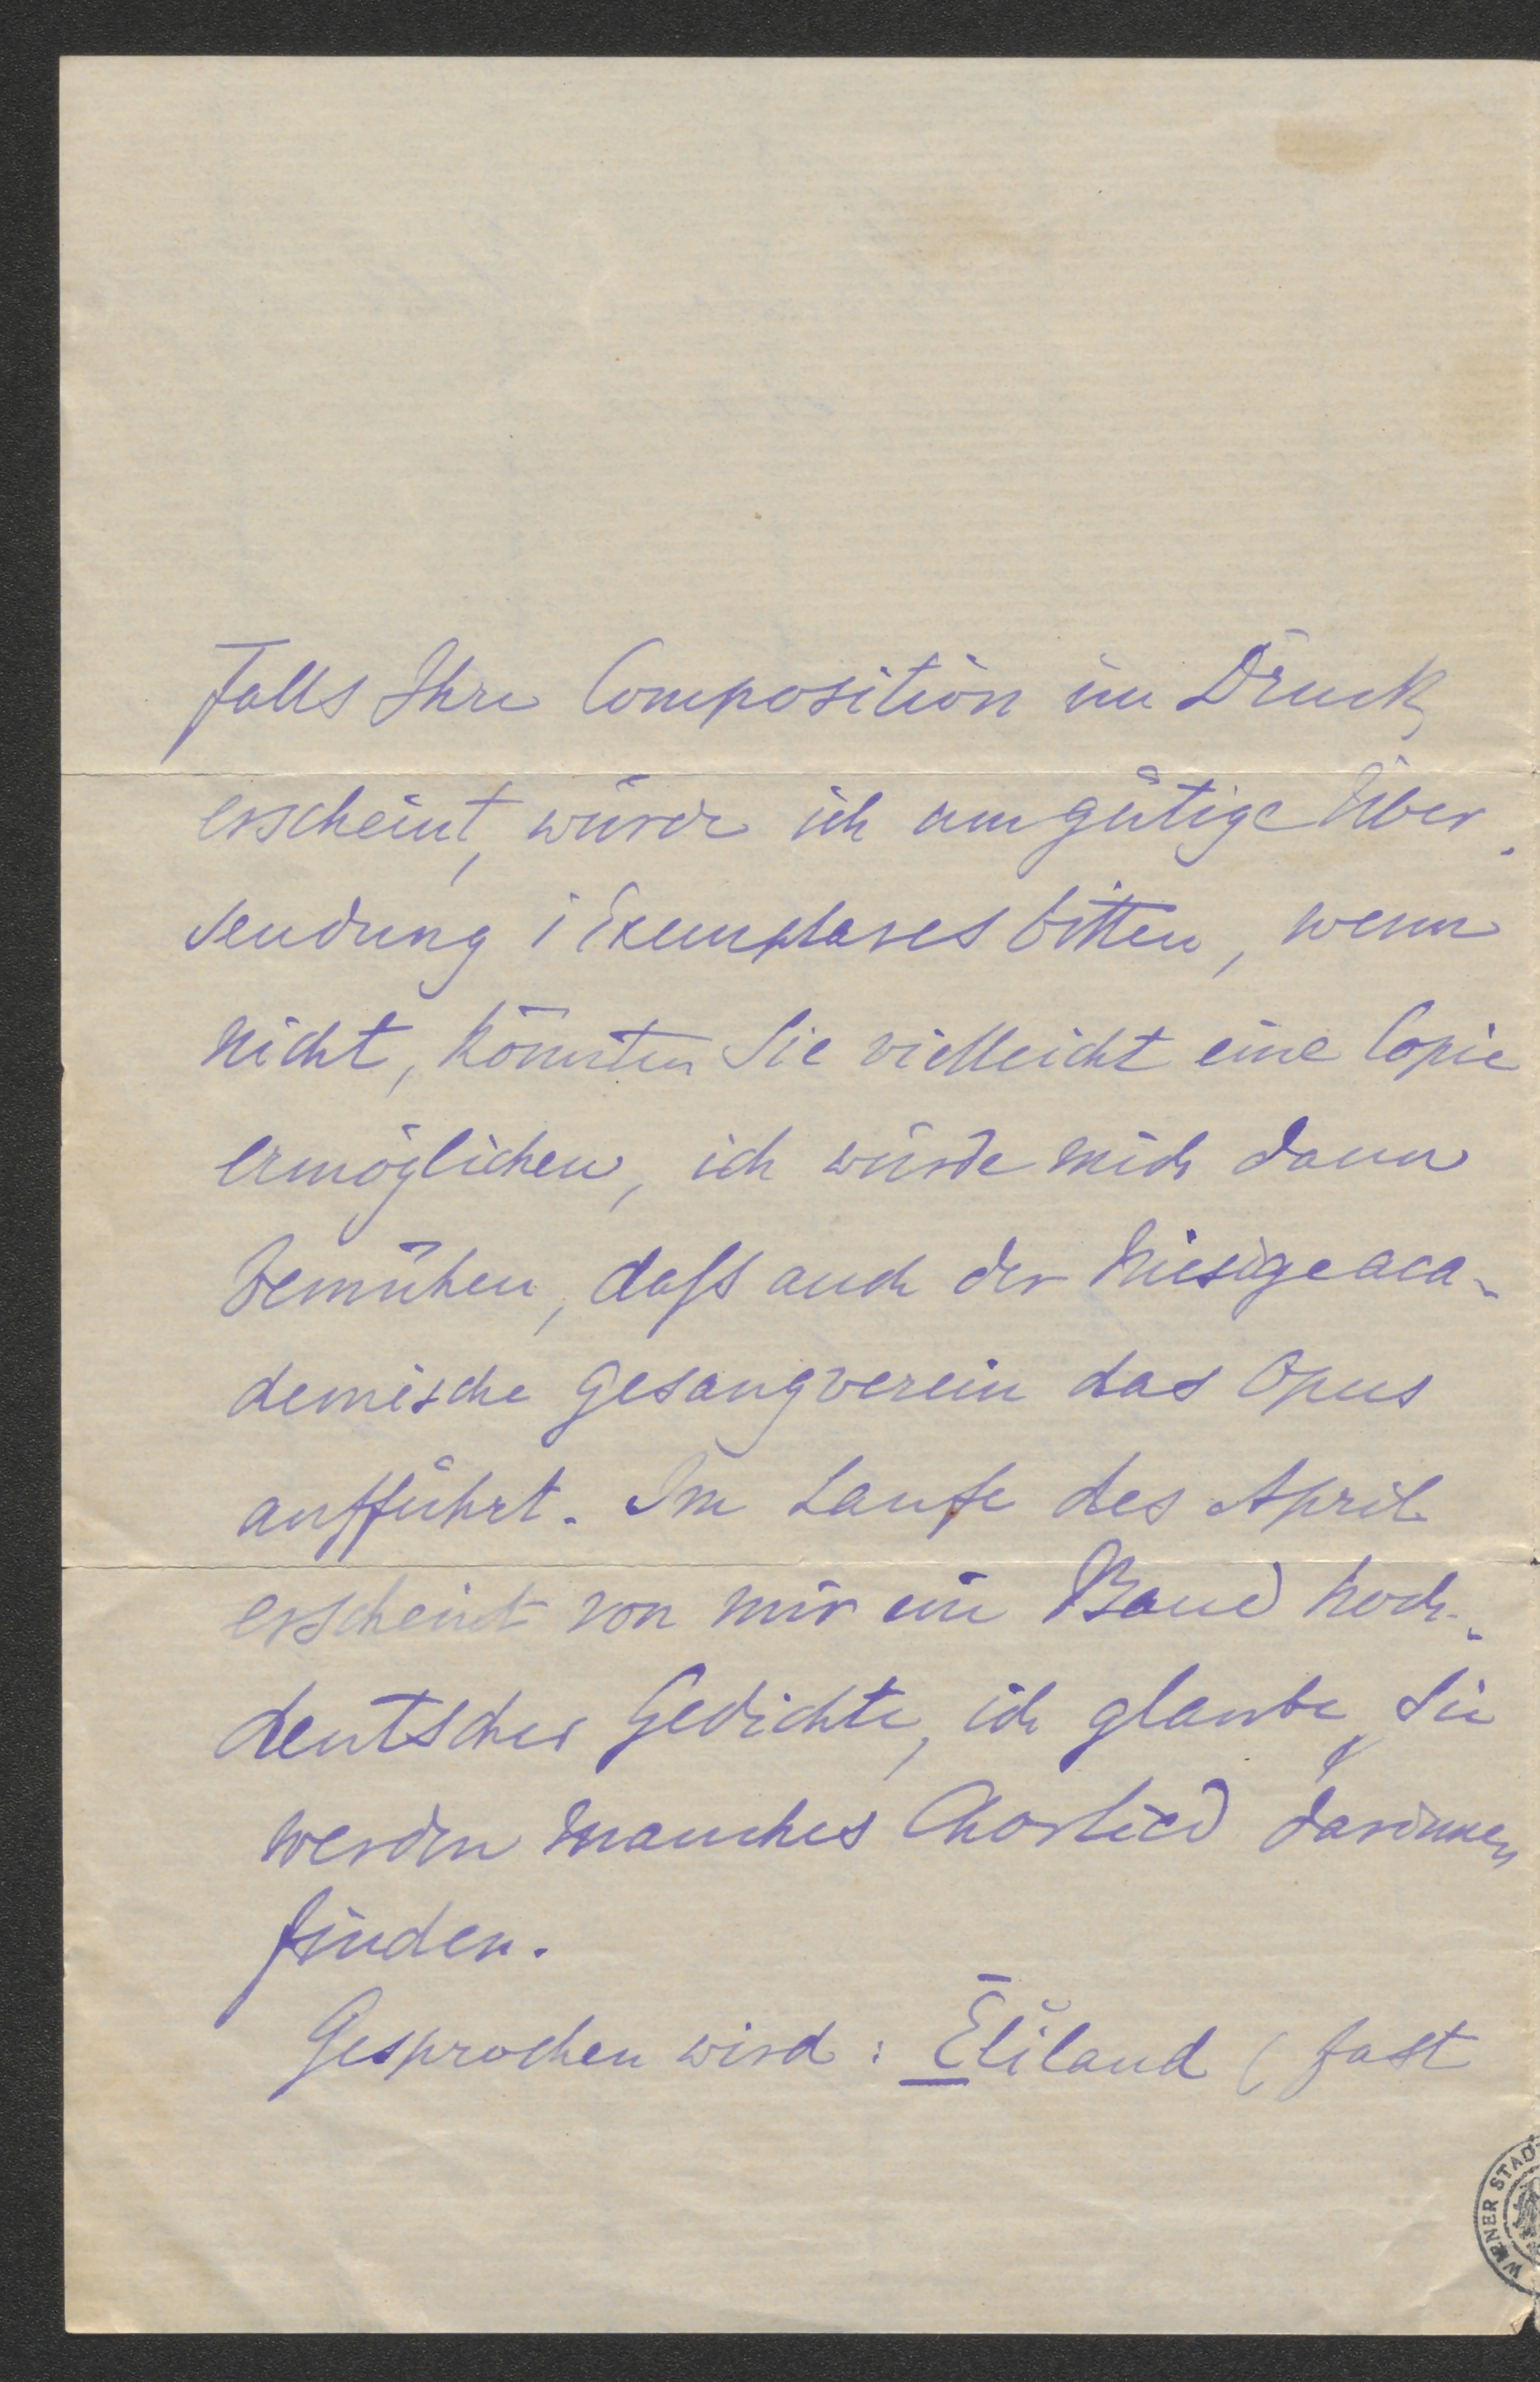 Falls Ihre Composition im Druck
erscheint, würde ich um gütige Über-
sendung 1 Exemplares bitten, wenn
nicht, könnten Sie vielleicht eine Copie
ermöglichen, ich würde mich dann
bemühen, dass auch der hiesige aca-
demische Gesangverein das Opus
aufführt. Im Laufe des April
erscheint von mir ein Band hoch-
deutscher Gedichte, ich glaube, Sie
werden manches Chorlied darinnen
finden.
Gesprochen wird: Ēlĭland (fast
WIENER STAD